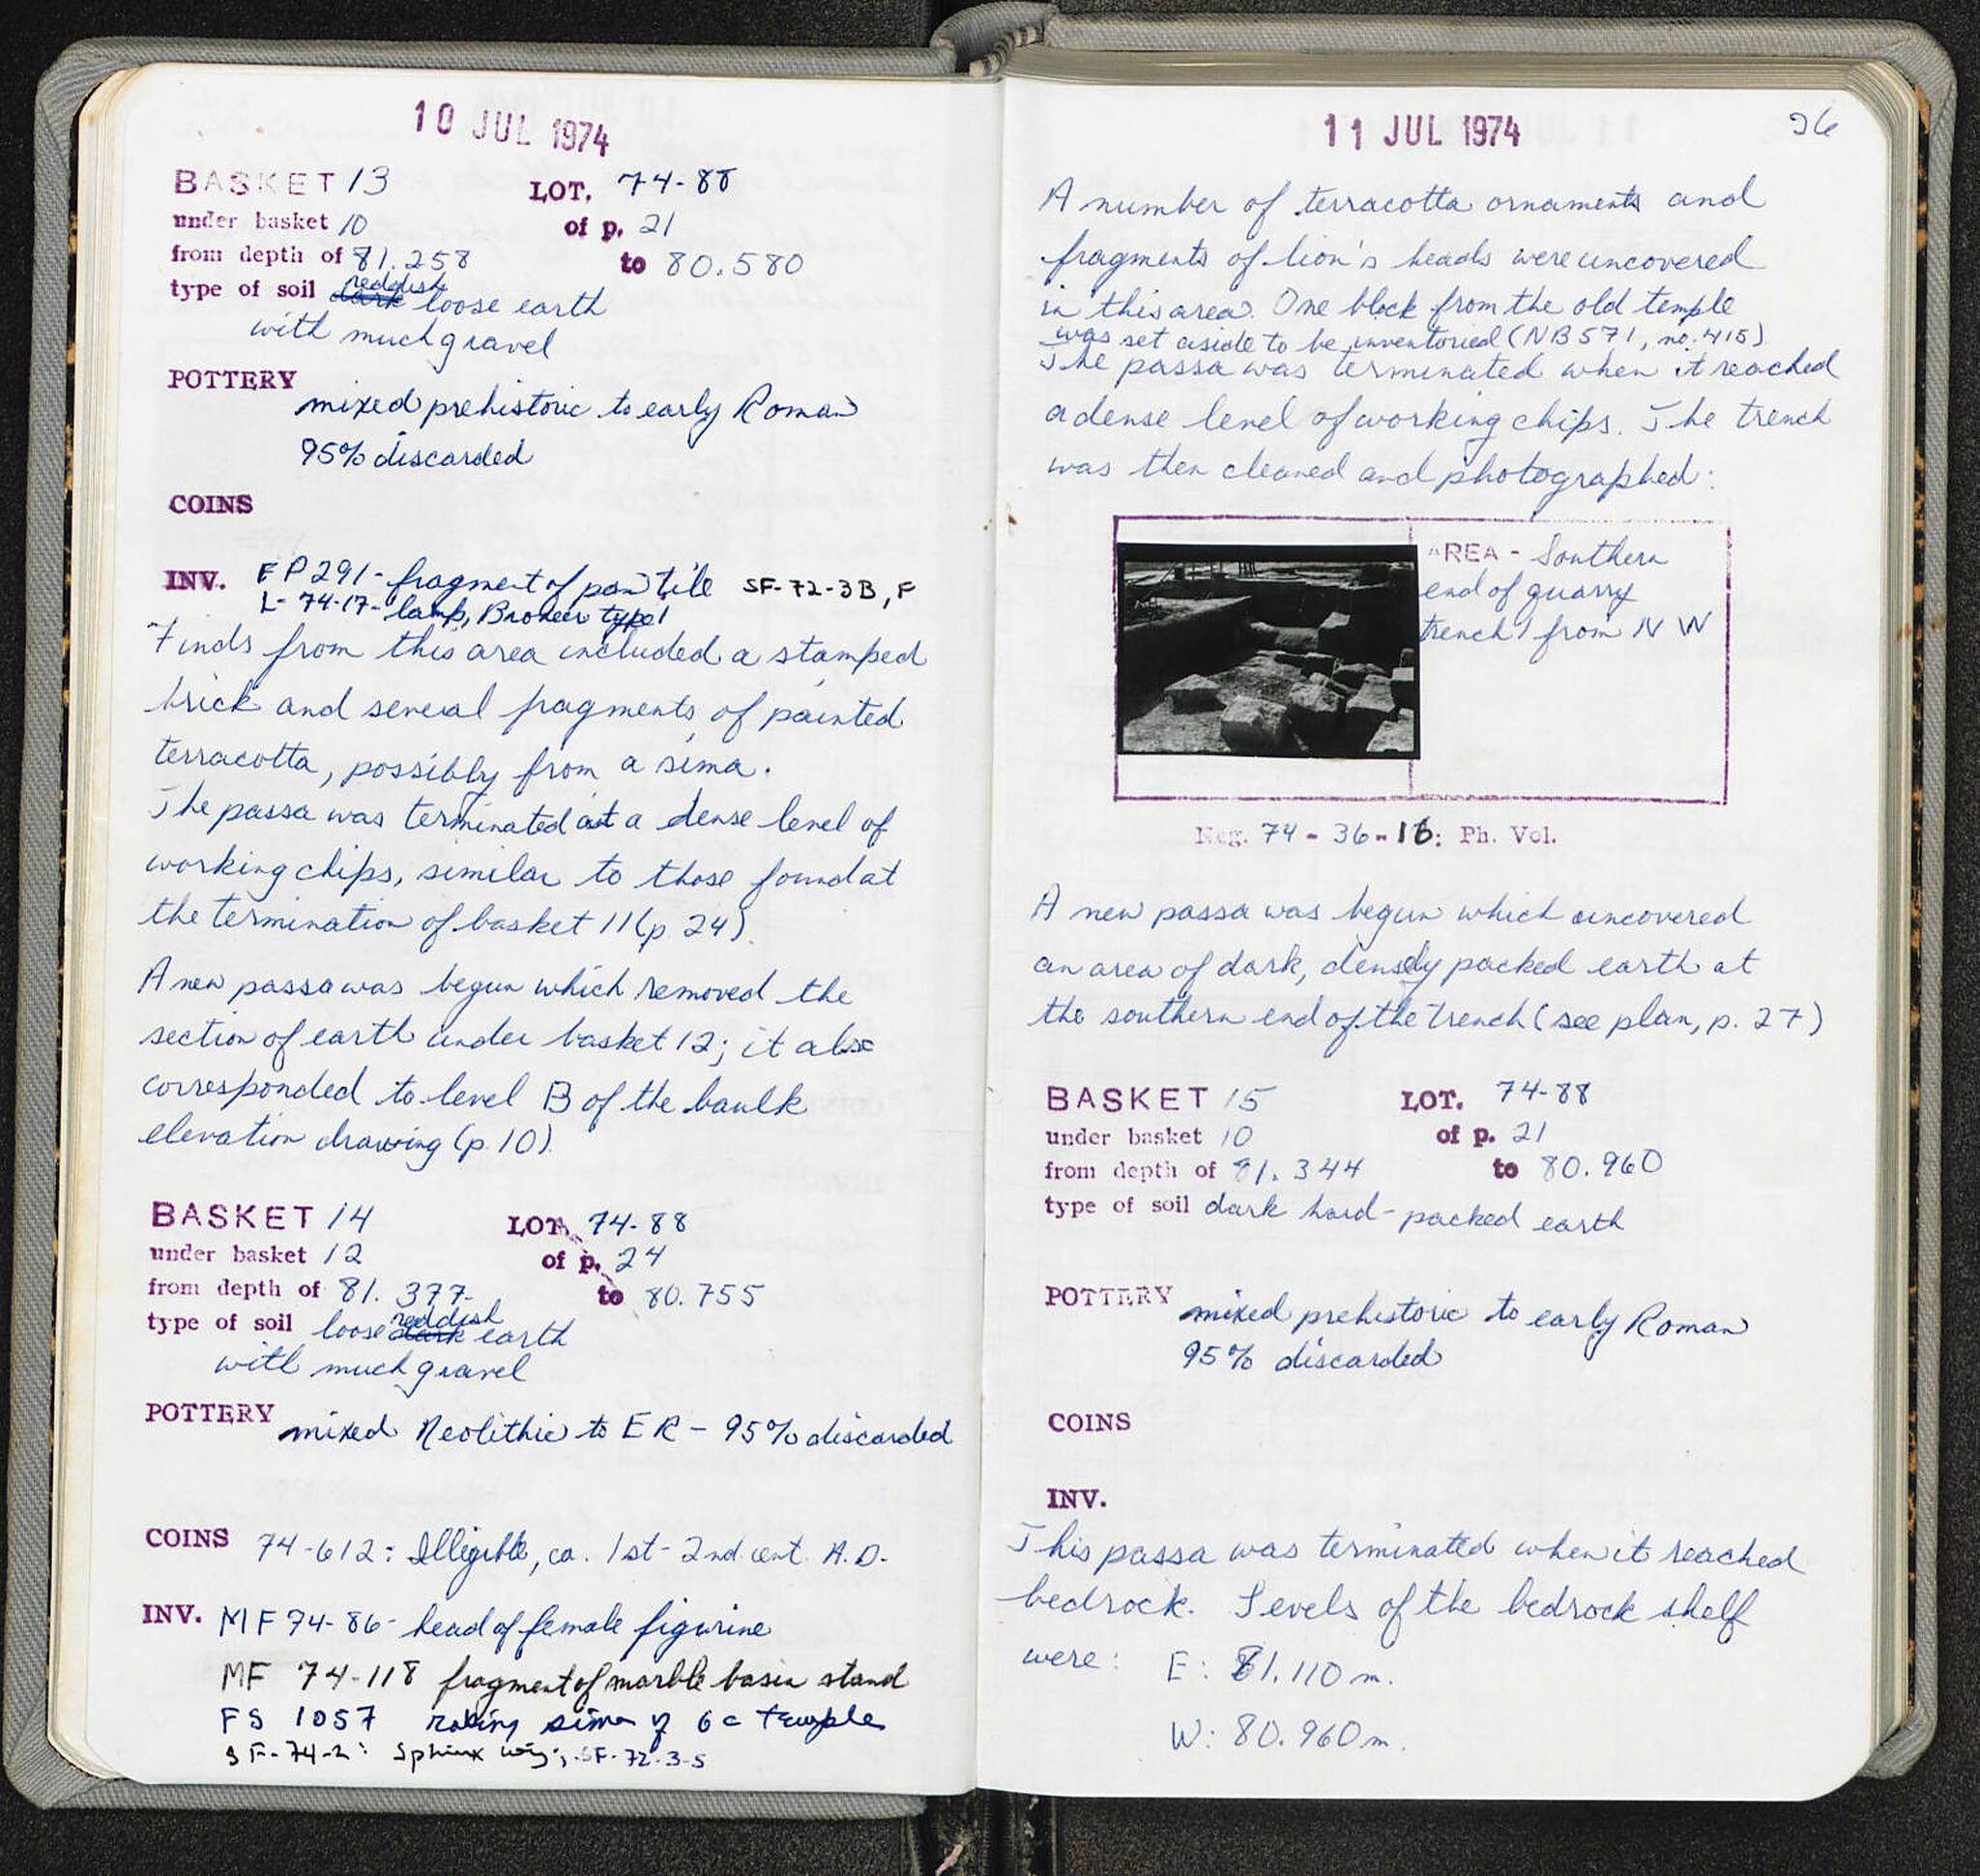 10 JUL 1974
BASKET 13 LOT. 74-88
under basket 10 of p. 21
from depth of 81.258 to 80.580
type of soil dark reddish loose earth
with much gravel
POTTERY
mixed prehistoric to early Roman
95% discarded
COINS
INV. FP291- fragment of pan tile SF-72-3B, F
L-74-17- lamp, Broneer type
Finds from this area included a stamped
brick and several fragments of painted
terracotta, possibly from a sima.
The passa was terminated at a dense level of
working chips, similar to those found at
the termination of basket 11 (p. 24).
A new passa was begun which removed the
section of earth under basket 12; it also
corresponded to level B of the baulk
elevation drawing (p. 10).
BASKET 14 LOT. 74-88
under basket 12 of p. 24
from depth of 81.377 to 80.755
type of soil loose dark reddish earth
with much gravel
POTTERY mixed Neolithic to ER - 95% discarded
COINS 74-612: Illegible, ca. 1st-2nd cent. A.D.
INV. MF 74-86- head of female figurine
MF 74-118 fragment of marble basin stand
FS 1057 raking sima of 6c temple
SF-74-2: Sphinx wing; SF-72-3-S
11 JUL 1974 26
A number of terracotta ornaments and
fragments of lion's heads were uncovered
in this area. One block from the old temple
was set aside to be inventoried (NB 571, no. 415)
The passa was terminated when it reached
a dense level of working chips. The trench
was then cleaned and photographed:
AREA - Southern
end of quarry
trench from NW
Neg. 74-36-16: Ph. Vol.
A new passa was begun which uncovered
an area of dark, densely packed earth at
the southern end of the trench (see plan, p. 27)
BASKET 15 LOT. 74-88
under basket 10 of p. 21
from depth of 81.344 to 80.960
type of soil dark hard-packed earth
POTTERY mixed prehistoric to early Roman
95% discarded
COINS
INV.
This passa was terminated when it reached
bedrock. Levels of the bedrock shelf
were: E: 81.110 m.
W: 80.960 m.